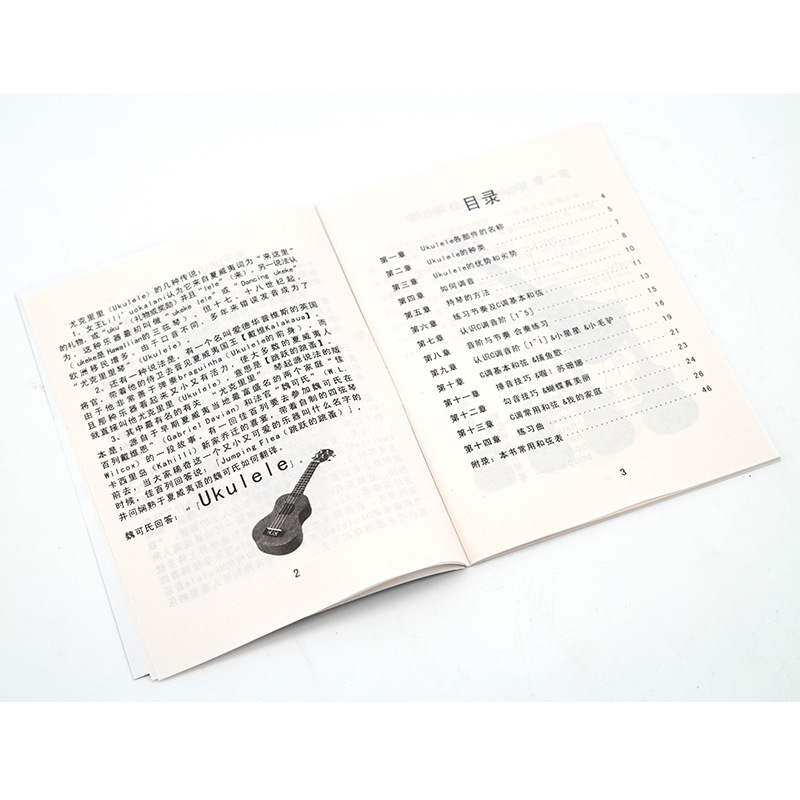 尤克里里（Ukulele）的几种传说：
1、女王Lili'uokalani认为它来自夏威夷词为“来这里
的礼物，或“uku”（礼物或奖励）并且“lele”（来）。另一说法认
为，这种乐器最初叫做‘ukeke lele’或“Dancing ukeke”
（ukeke是Hawaiian的三弦琴），但十七，十八世纪起，
欧洲移民增多，由于口音不同，多年来错误发音成为了
“尤克里里琴”（Ukulele）。
2、还有一种说法是，有一个名叫爱德华普维斯的英国
将官，带着他的侍卫去晋见夏威夷国王【戴维Kalakaua】，
由于他非常善于弹奏braguinha（Ukulele的前身），而
且那种乐器看起来又小又有活力，使大多数的夏威夷人
就直接叫他尤克里里（Ukulele），意思是【跳跃的跳蚤】
3、其中最有名的有名“尤克里里” 琴起源说法的版
本是：源自于早期夏威夷当地最富盛名的两个家庭“佳
百列戴维恩”（Gabriel Davian）和法官“魏可氏”（W.L.
Wilcox）的一段故事，有一回佳百列要去参加魏可氏在
卡西里岛（Kahili）新家乔迁的喜宴，带着自制的四弦琴
前去，当大家稀奇这一个又小又可爱的乐器叫什么名字的
时候，佳百列回答说：「Jumping Flea（跳跃的跳蚤）」，
并问娴熟于夏威夷语的魏可氏如何翻译。
魏可氏回答：“「Ukulele」。
2
目录
第一章 Ukulele各部件的名称 4
第二章 Ukulele的种类 5
第三章 Ukulele的优势和劣势 7
第四章 如何调音 8
第五章 持琴的方法 10
第六章 练习节奏及C调基本和弦 11
第七章 认识C调音阶 [1~5] 13
第八章 音阶与节奏 合奏练习 15
第九章 认识C调音阶 [1~i] &小星星 &小毛驴 18
第十章 C调基本和弦 &捕鱼歌 21
第十一章 捶音技巧 &噢！苏珊娜 23
第十二章 勾音技巧 &蝴蝶真美丽 24
第十三章 C调常用和弦 &我的家庭 26
第十四章 练习曲 28
附录：本书常用和弦表 46
3